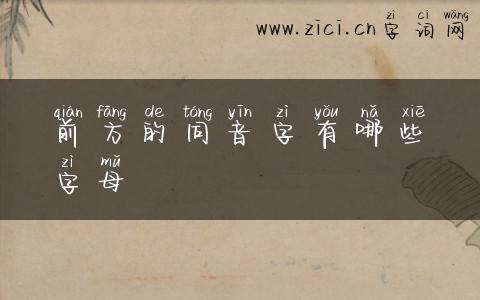 zì cí wǎng
www.zici.cn字词网
qián fāng de tóng yīn zì yǒu nǎ xiē
前方的同音字有哪些
zì mǔ
字母